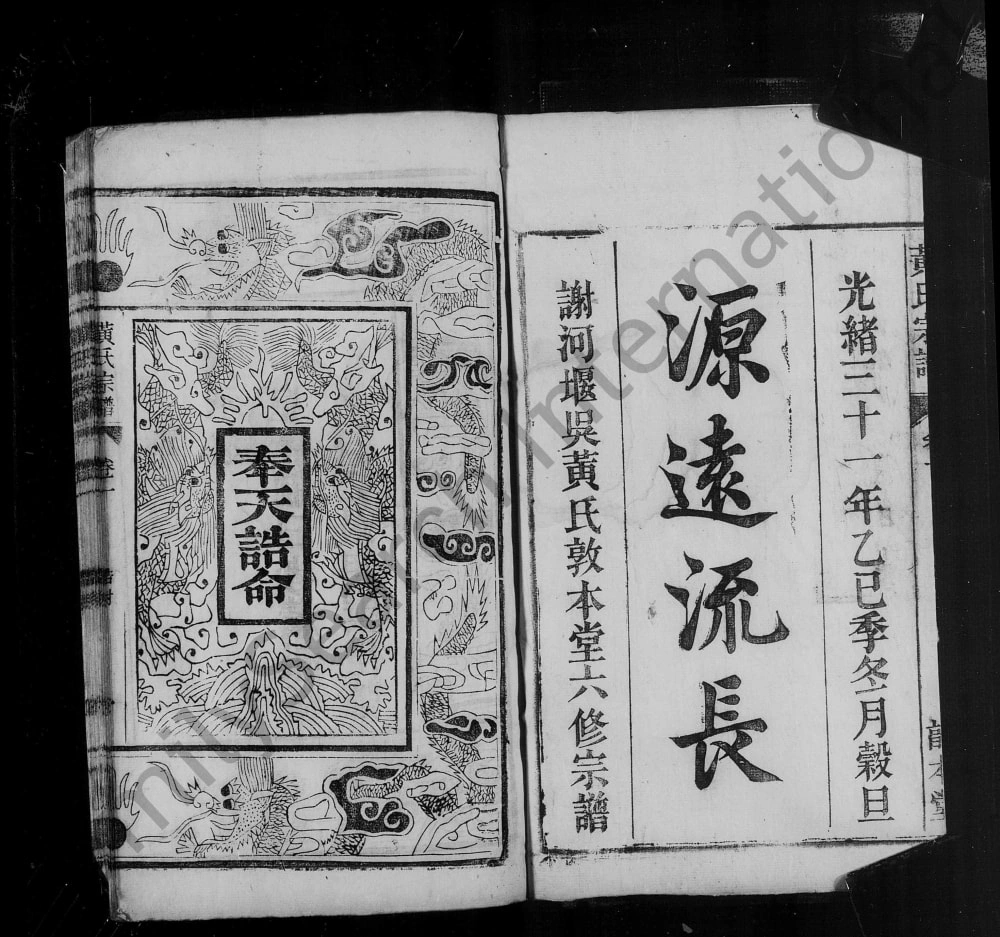 黃氏宗譜
光緒三十一年乙巳季冬月穀旦
源遠流長
謝河堰吳黃氏敦本堂六修宗譜
奉天誥命
黃氏宗譜
卷一
International